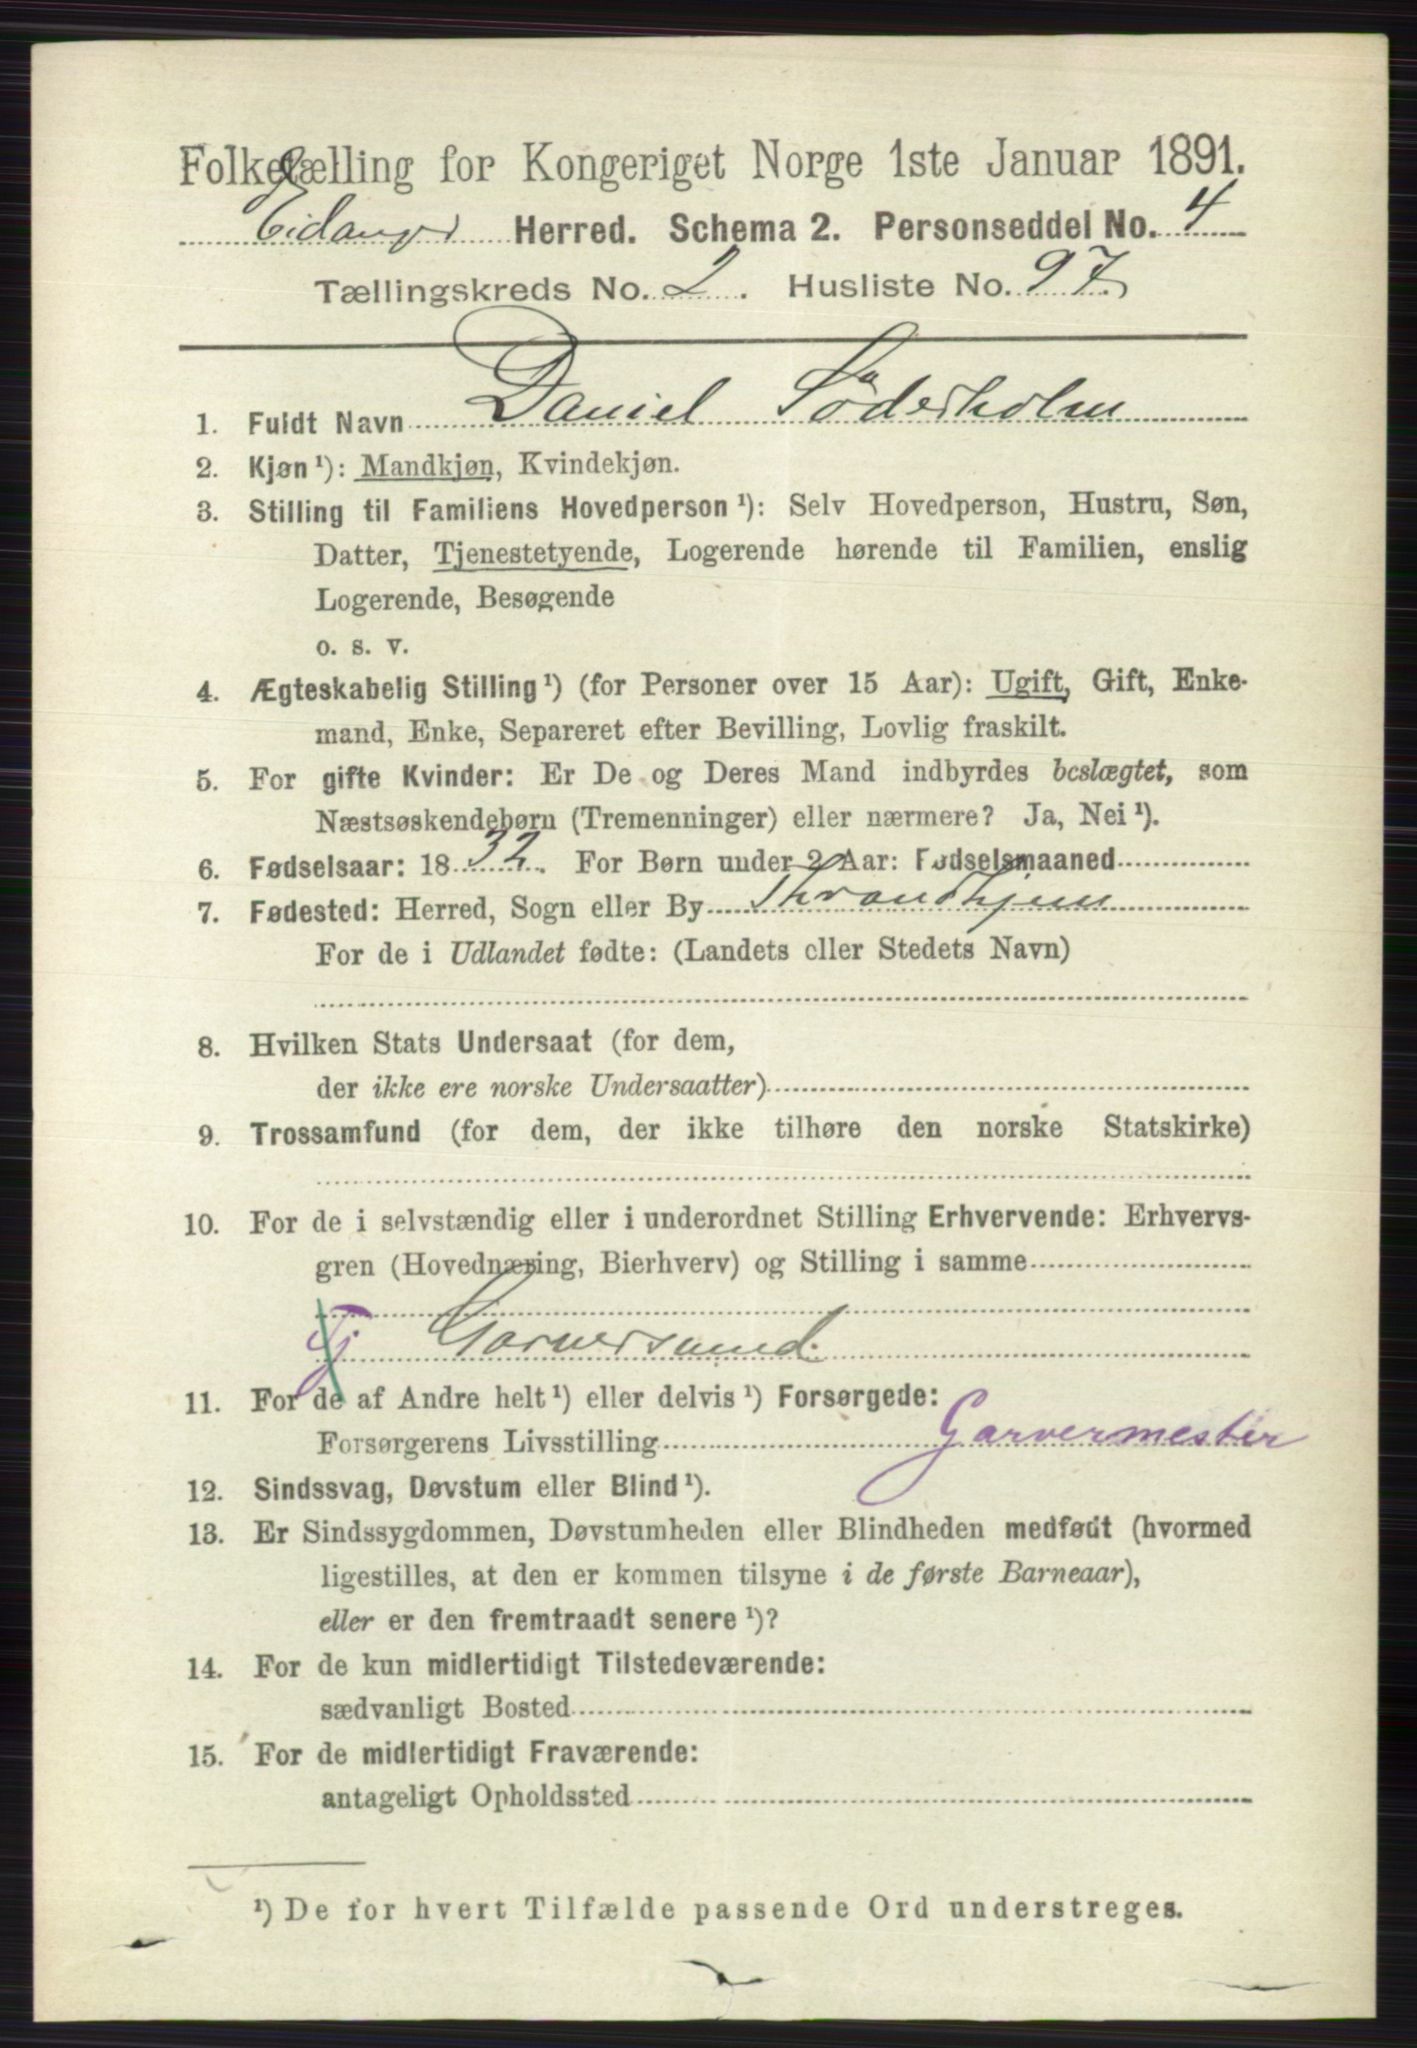 Folketælling for Kongeriget Norge 1ste Januar 1891.
Eidanger Herred. Schema 2. Personseddel No. 4
Tællingskreds No. 2. Husliste No. 97.
1. Fuldt Navn Daniel Söderholm
2. Kjøn ¹): Mandkjøn, Kvindekjøn.
3. Stilling til Familiens Hovedperson ¹): Selv Hovedperson, Hustru, Søn,
Datter, Tjenestetyende, Logerende hørende til Familien, enslig
Logerende, Besøgende
o. s. v.
4. Ægteskabelig Stilling ¹) (for Personer over 15 Aar): Ugift, Gift, Enke-
mand, Enke, Separeret efter Bevilling, Lovlig fraskilt.
5. For gifte Kvinder: Er De og Deres Mand indbyrdes beslægtet, som
Næstsøskendebørn (Tremenninger) eller nærmere? Ja, Nei ¹).
6. Fødselsaar: 1832. For Børn under 2 Aar: Fødselsmaaned
7. Fødested: Herred, Sogn eller By Throndhjem
For de i Udlandet fødte: (Landets eller Stedets Navn)
8. Hvilken Stats Undersaat (for dem,
der ikke ere norske Undersaatter)
9. Trossamfund (for dem, der ikke tilhøre den norske Statskirke)
10. For de i selvstændig eller i underordnet Stilling Erhvervende: Erhvervs-
gren (Hovednæring, Bierhverv) og Stilling i samme
Tj Garversvend.
11. For de af Andre helt ¹) eller delvis ¹) Forsørgede:
Forsørgerens Livsstilling Garvermester
12. Sindssvag, Døvstum eller Blind ¹).
13. Er Sindssygdommen, Døvstumheden eller Blindheden medfødt (hvormed
ligestilles, at den er kommen tilsyne i de første Barneaar),
eller er den fremtraadt senere ¹)?
14. For de kun midlertidigt Tilstedeværende:
sædvanligt Bosted
15. For de midlertidigt Fraværende:
antageligt Opholdssted
¹) De for hvert Tilfælde passende Ord understreges.